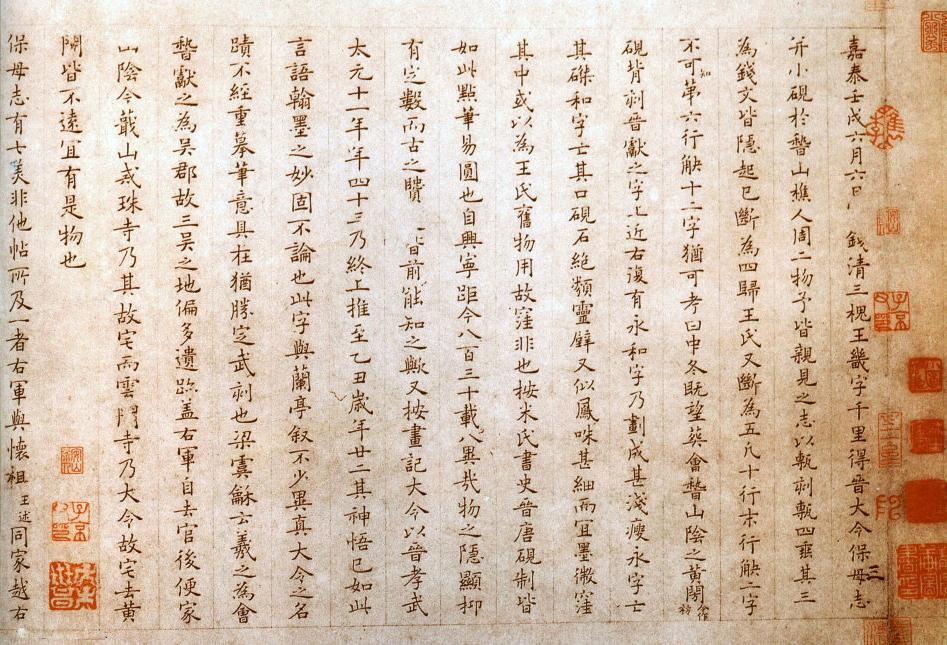 嘉泰壬戌六月六日 錢清三槐王畿字千里得晉大令保母志
并小硯於嵇山樵人周二物予皆親見之志以甎刻甎四垂其三
為錢文皆隱起已斷為四歸王氏又斷為五凡十行末行缺二字
不可知第六行缺十二字猶可考曰中冬既望葬會嵇山陰之黃閍
硯背刻晉獻之字上近右復有永和字乃劃成甚淺瘦永字亡
其磔和字亡其口硯石絕類靈壁又似鳳咮甚細而宜墨微窪
其中或以為王氏舊物用故窪非也按米氏書史晉唐硯制皆
如此點筆易圓也自興寧距今八百三十載八異哉物之隱顯抑
有定數而古之賢 皆前能知之歟又按畫記大令以晉孝武
太元十一年年四十三乃終上推至乙丑歲年廿二其神悟已如此
言語翰墨之妙固不論也此字與蘭亭叙不少異真大令之名
蹟不經重摹筆意具在猶勝定武刻也梁虞龢云羲之為會
嵇獻之為吳郡故三吳之地偏多遺跡蓋右軍自去官後便家
山陰今蕺山戒珠寺乃其故宅而雲門寺乃大令故宅去黃
閍皆不遠宜有是物也
保母志有七美非他帖所及一者右軍與懷祖王述同家越右